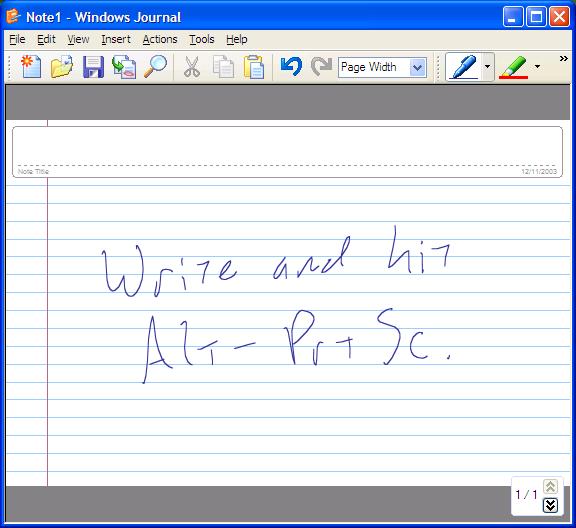 Note1 - Windows Journal
File Edit View Insert Actions Tools Help
Page Width
»
Note Title
12/11/2003
Write and hit
Alt - Pr + Sc.
1 / 1